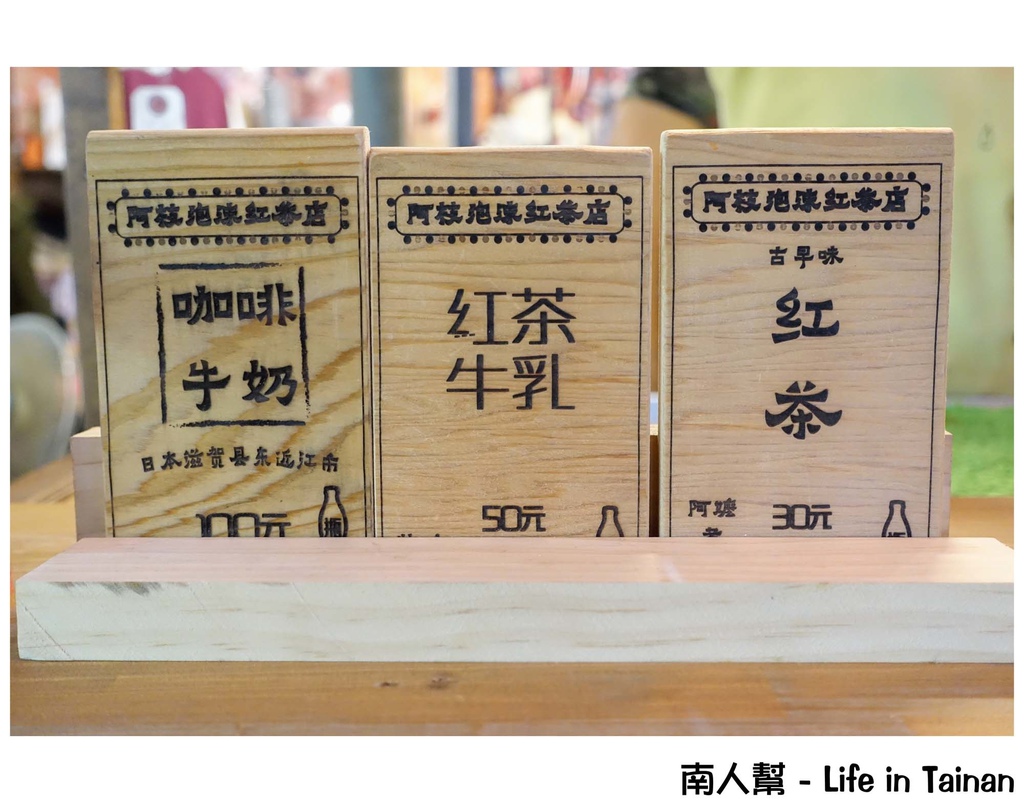 阿枝泡沫红茶店
咖啡
牛奶
日本滋贺县东近江市
100元
瓶
阿枝泡沫红茶店
红茶
牛乳
50元
阿枝泡沫红茶店
古早味
红
茶
30元
南人幫 - Life in Tainan